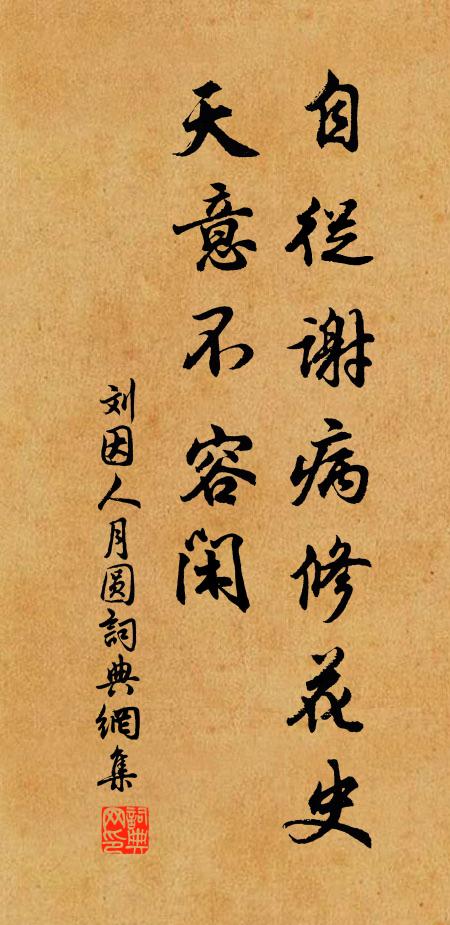 自從謝病修花史
天意不容閑
刘因人月圆詞典網集
詞典
网印